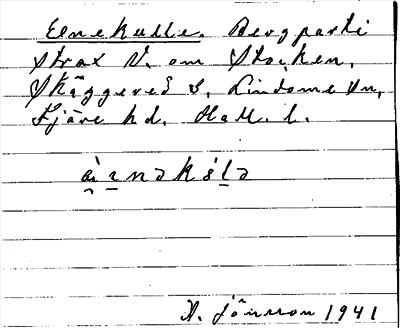 Enekulle. Bergparti
strax V. om Stocken,
Skäggered S, Lindome sn,
Fjäre hd. Hall. l.
A. Jönsson 1941